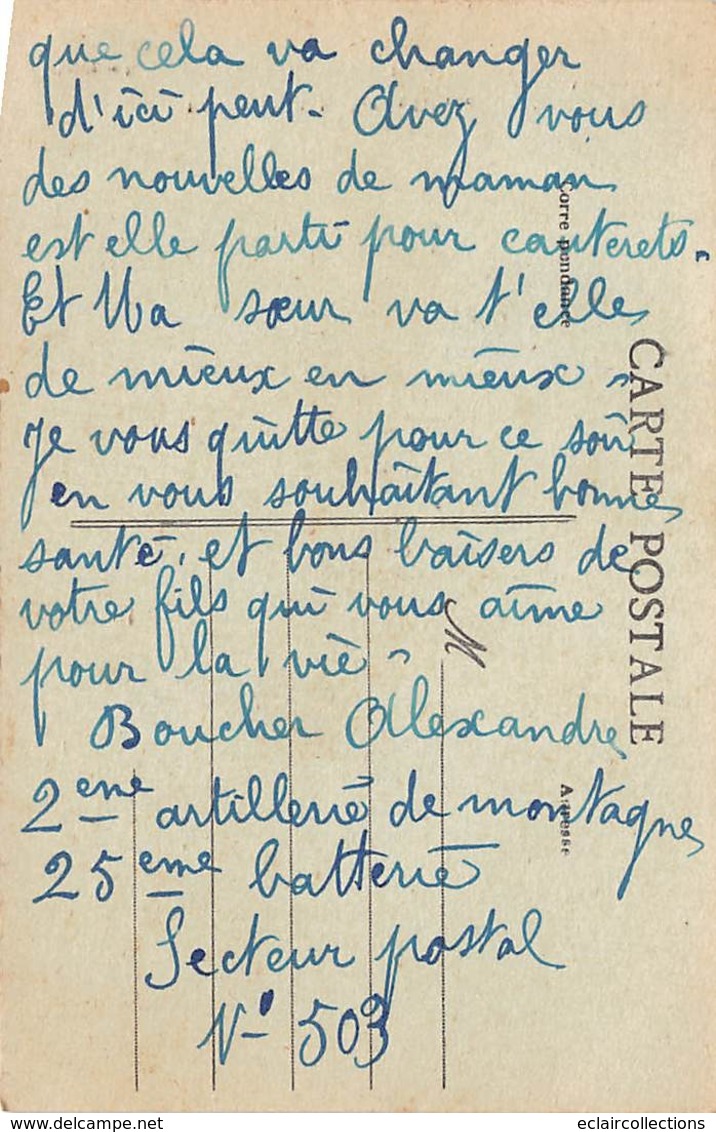 que cela va changer
d'ici peut. Avez vous
des nouvelles de maman
est elle parti pour cauterets.
Et Ma sœur va t'elle
de mieux en mieux.
Je vous quitte pour ce soir
en vous souhaitant bonne
santé, et bons baisers de
votre fils qui vous aime
pour la vie.
Boucher Alexandre
2eme artillerie de montagne
25eme batterie
Secteur postal
N° 503
CARTE POSTALE
Correspondance
Adresse
M
eclaircollections